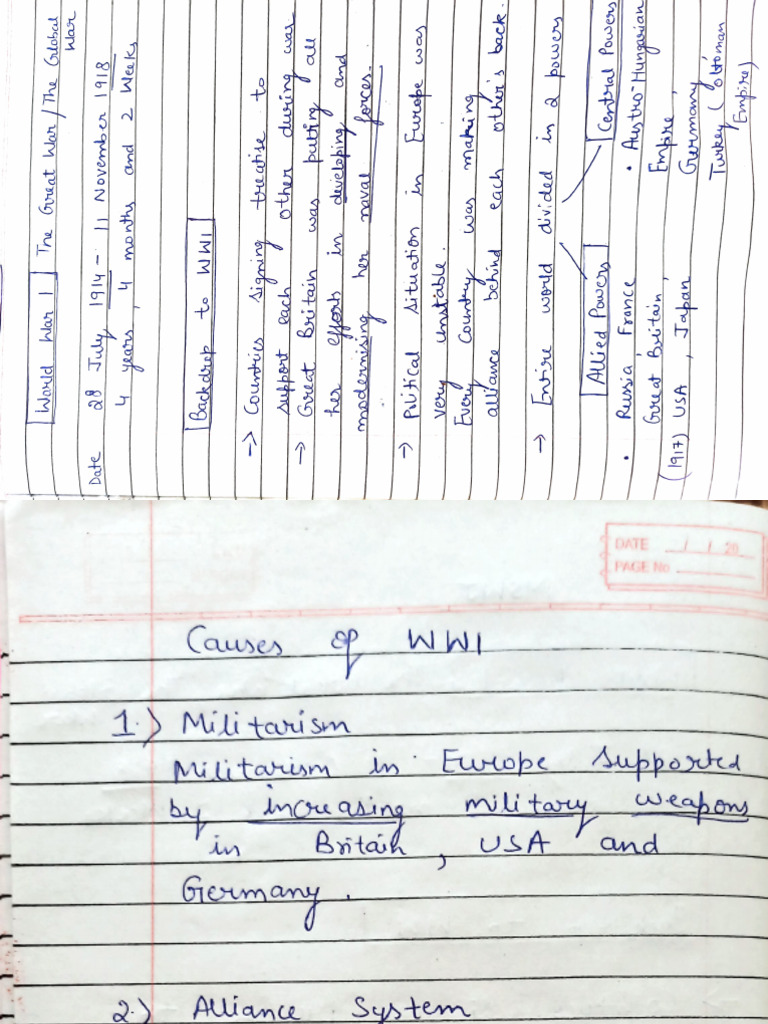 World War 1 The Great War / The Global
War
Date 28 July 1914 - 11 November 1918
4 years, 4 months and 2 Weeks
Backdrop to WW1
-> Countries signing treatise to
support each other during war
-> Great Britain was putting all
her efforts in developing and
modernising her naval forces.
-> Political situation in Europe was
very unstable.
Every Country was making
alliance behind each other's back.
-> Entire world divided in 2 powers
Allied Powers Central Powers
• Russia, France • Austro-Hungarian
Great Britain, Empire,
(1917) USA, Japan Germany
Turkey (Ottoman
Empire)
DATE / / 20
PAGE No
Causes of WW1
1.) Militarism
Militarism in Europe supported
by increasing military weapons
in Britain, USA and
Germany.
2.) Alliance System